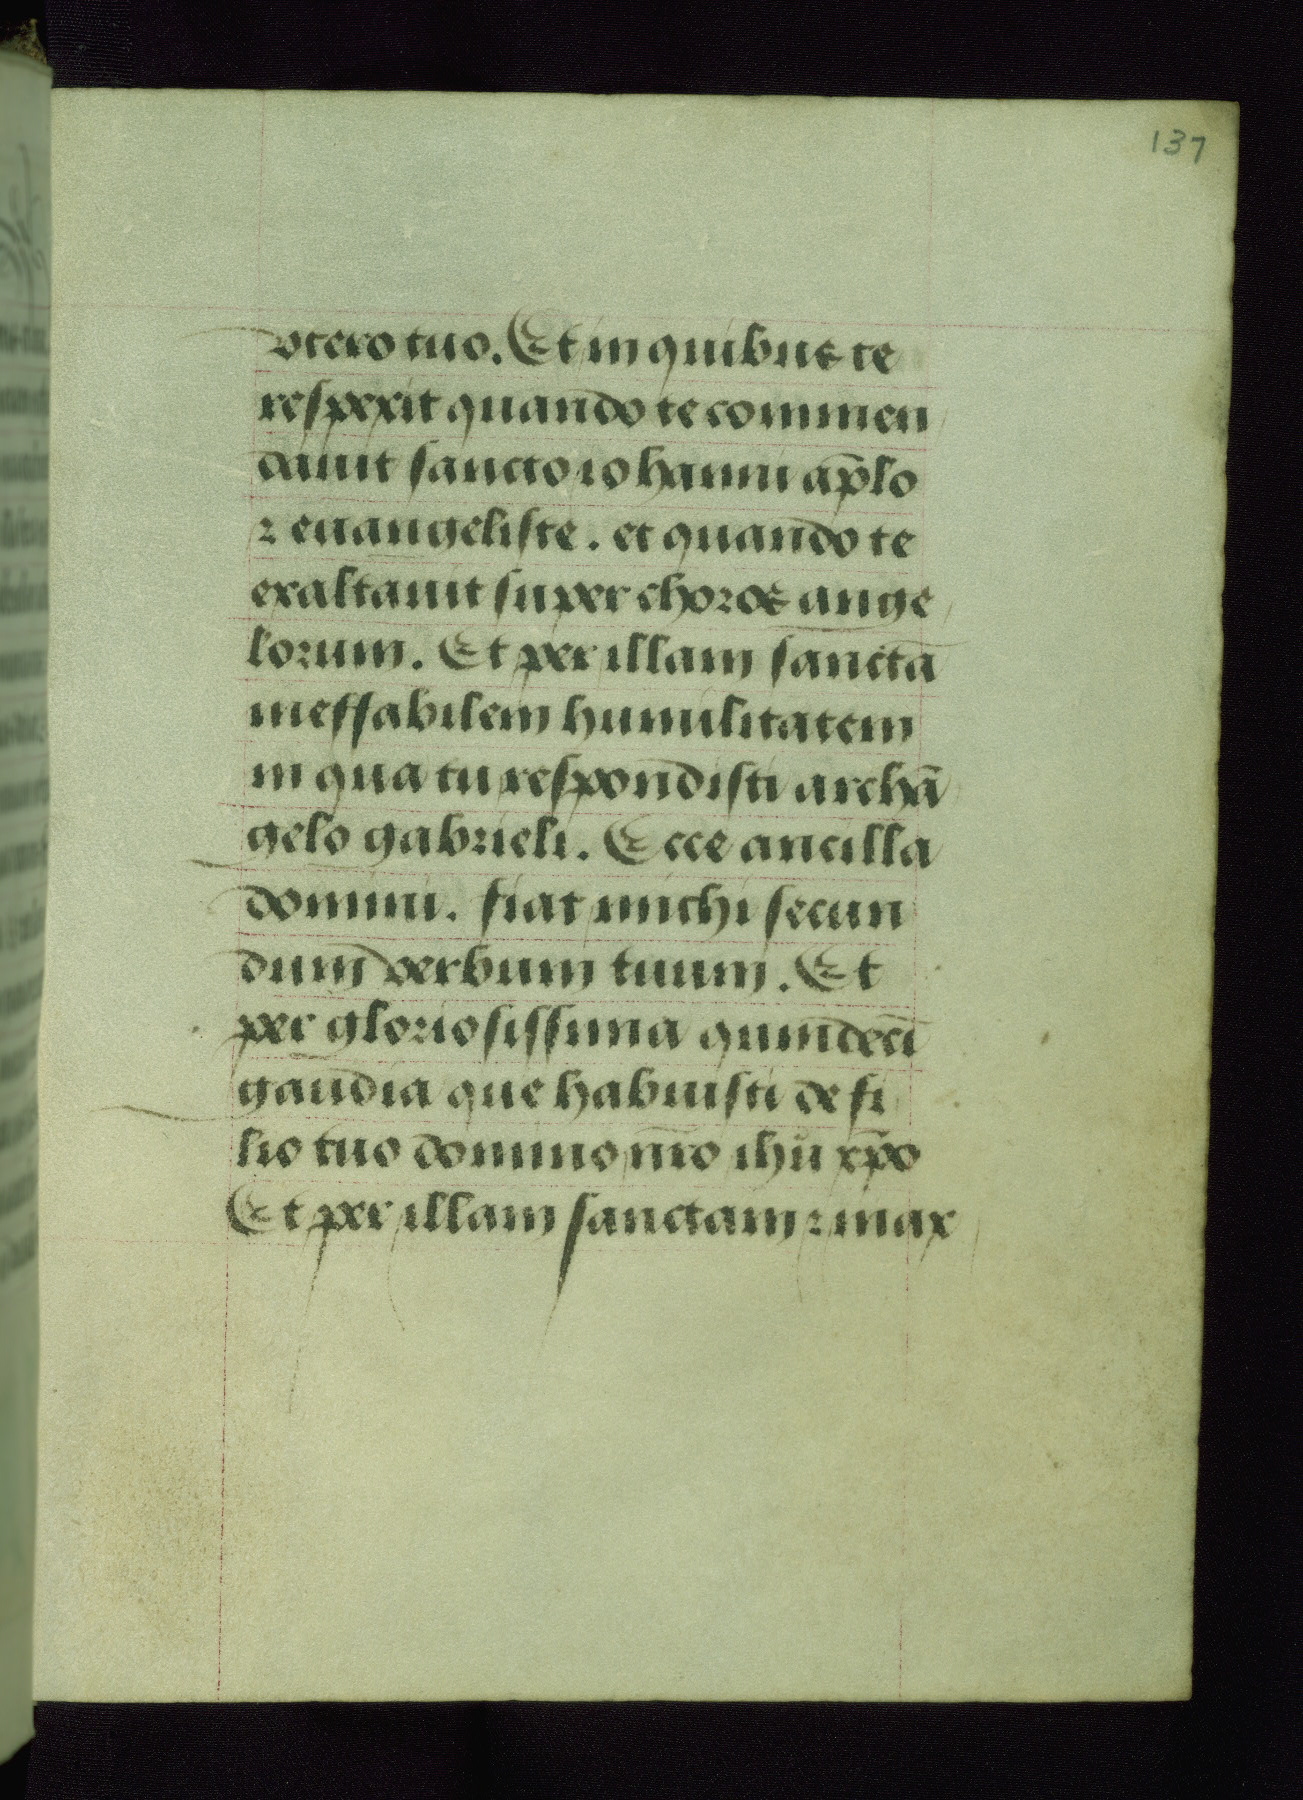 137
vtero tuo. Et in quibus te
respexit quando te commen
dauit sancto iohanni ap̄lo
⁊ euangeliste. et quando te
exaltauit super choros ange
lorum. Et per illam sanctā
ineffabilem humilitatem
in qua tu respondisti archā
gelo gabrieli. Ecce ancilla
domini. fiat michi secun
dum verbum tuum. Et
per gloriosissima quindecī
gaudia que habuisti de fi
lio tuo domino nr̄o ihū xp̄o
Et per illam sanctam ⁊ max